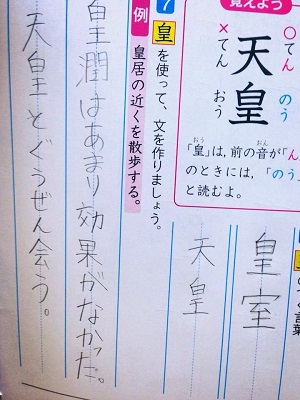 覚えよう
○てんのう
天皇
×てんおう
「皇」は、前の音が「ん
のときには、「のう
と読むよ。
おう
おん
言葉
皇室
天皇
7 皇を使って、文を作りましょう。
例 皇居の近くを散歩する。
皇潤はあまり効果がなかった。
天皇とぐうぜん会う。